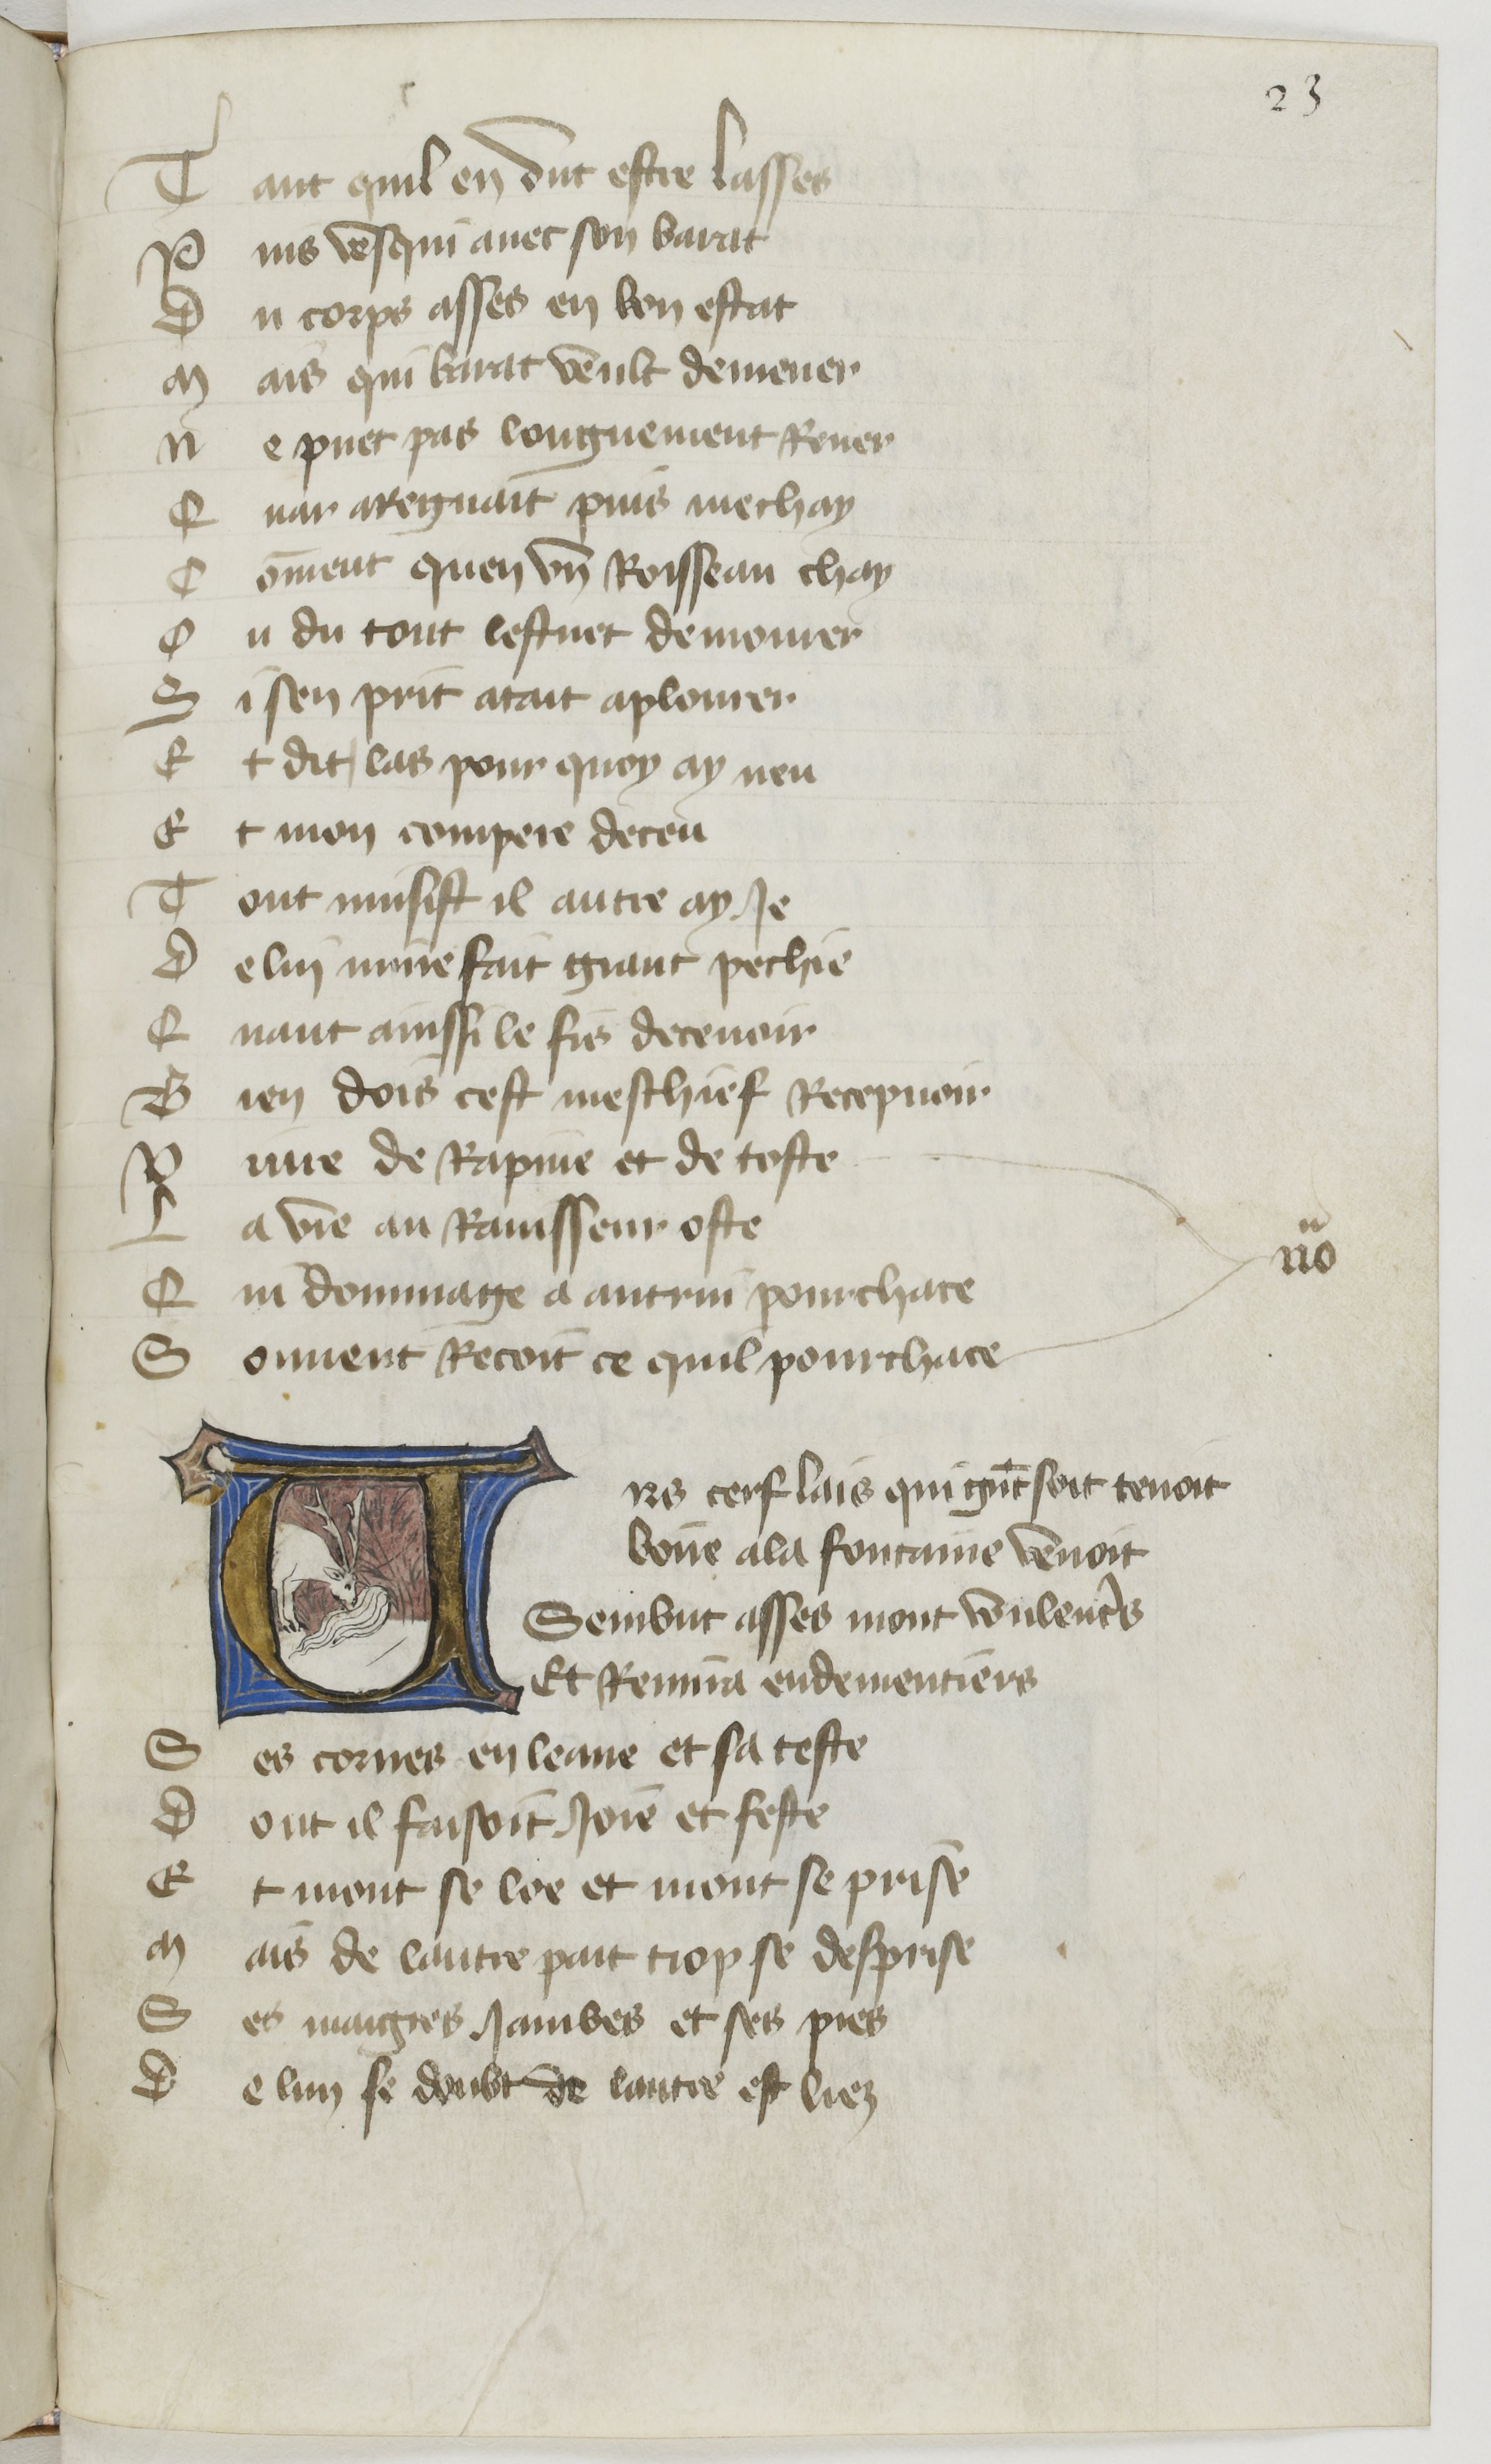 23
Tant quil en dut estre lasses
Puis vesqui auec son barat
Du corps asses en bon estat
Mais qui barat veult demener
Ne puet pas longuement Rener
Quar aRegnait puis mechay
Coment quen vn Roisseau chay
Ou du tout lestuet demourer
Si sen prit atait aplourer
Et dit las pour quoy ay neu
Et mon compere deceu
Tout nuisist il autre ay Je
De lui nuire fait grant pechie
Quant ainssi le fis deceuoir
Bien dois cest meschief Recepuoir
Piiue de Rapine et de toste
La vie au Rauisseur oste
Qui dommage a autrui pourchace
Souuent Recoit ce quil pourchace
no
Uns cerf lais qui gnt soit tenoit
boire ala fontaine venoit
Sembut asses mout voulentrs
Et Remira endementiers
Ses cornes en leaue et sa teste
Dont il faisoit Joie et feste
Et mout se loe et mout se prise
Mais de lautre part trop se desprise
Ses maigres Jambes et ses pies
De lun se doubt de lautre est liez